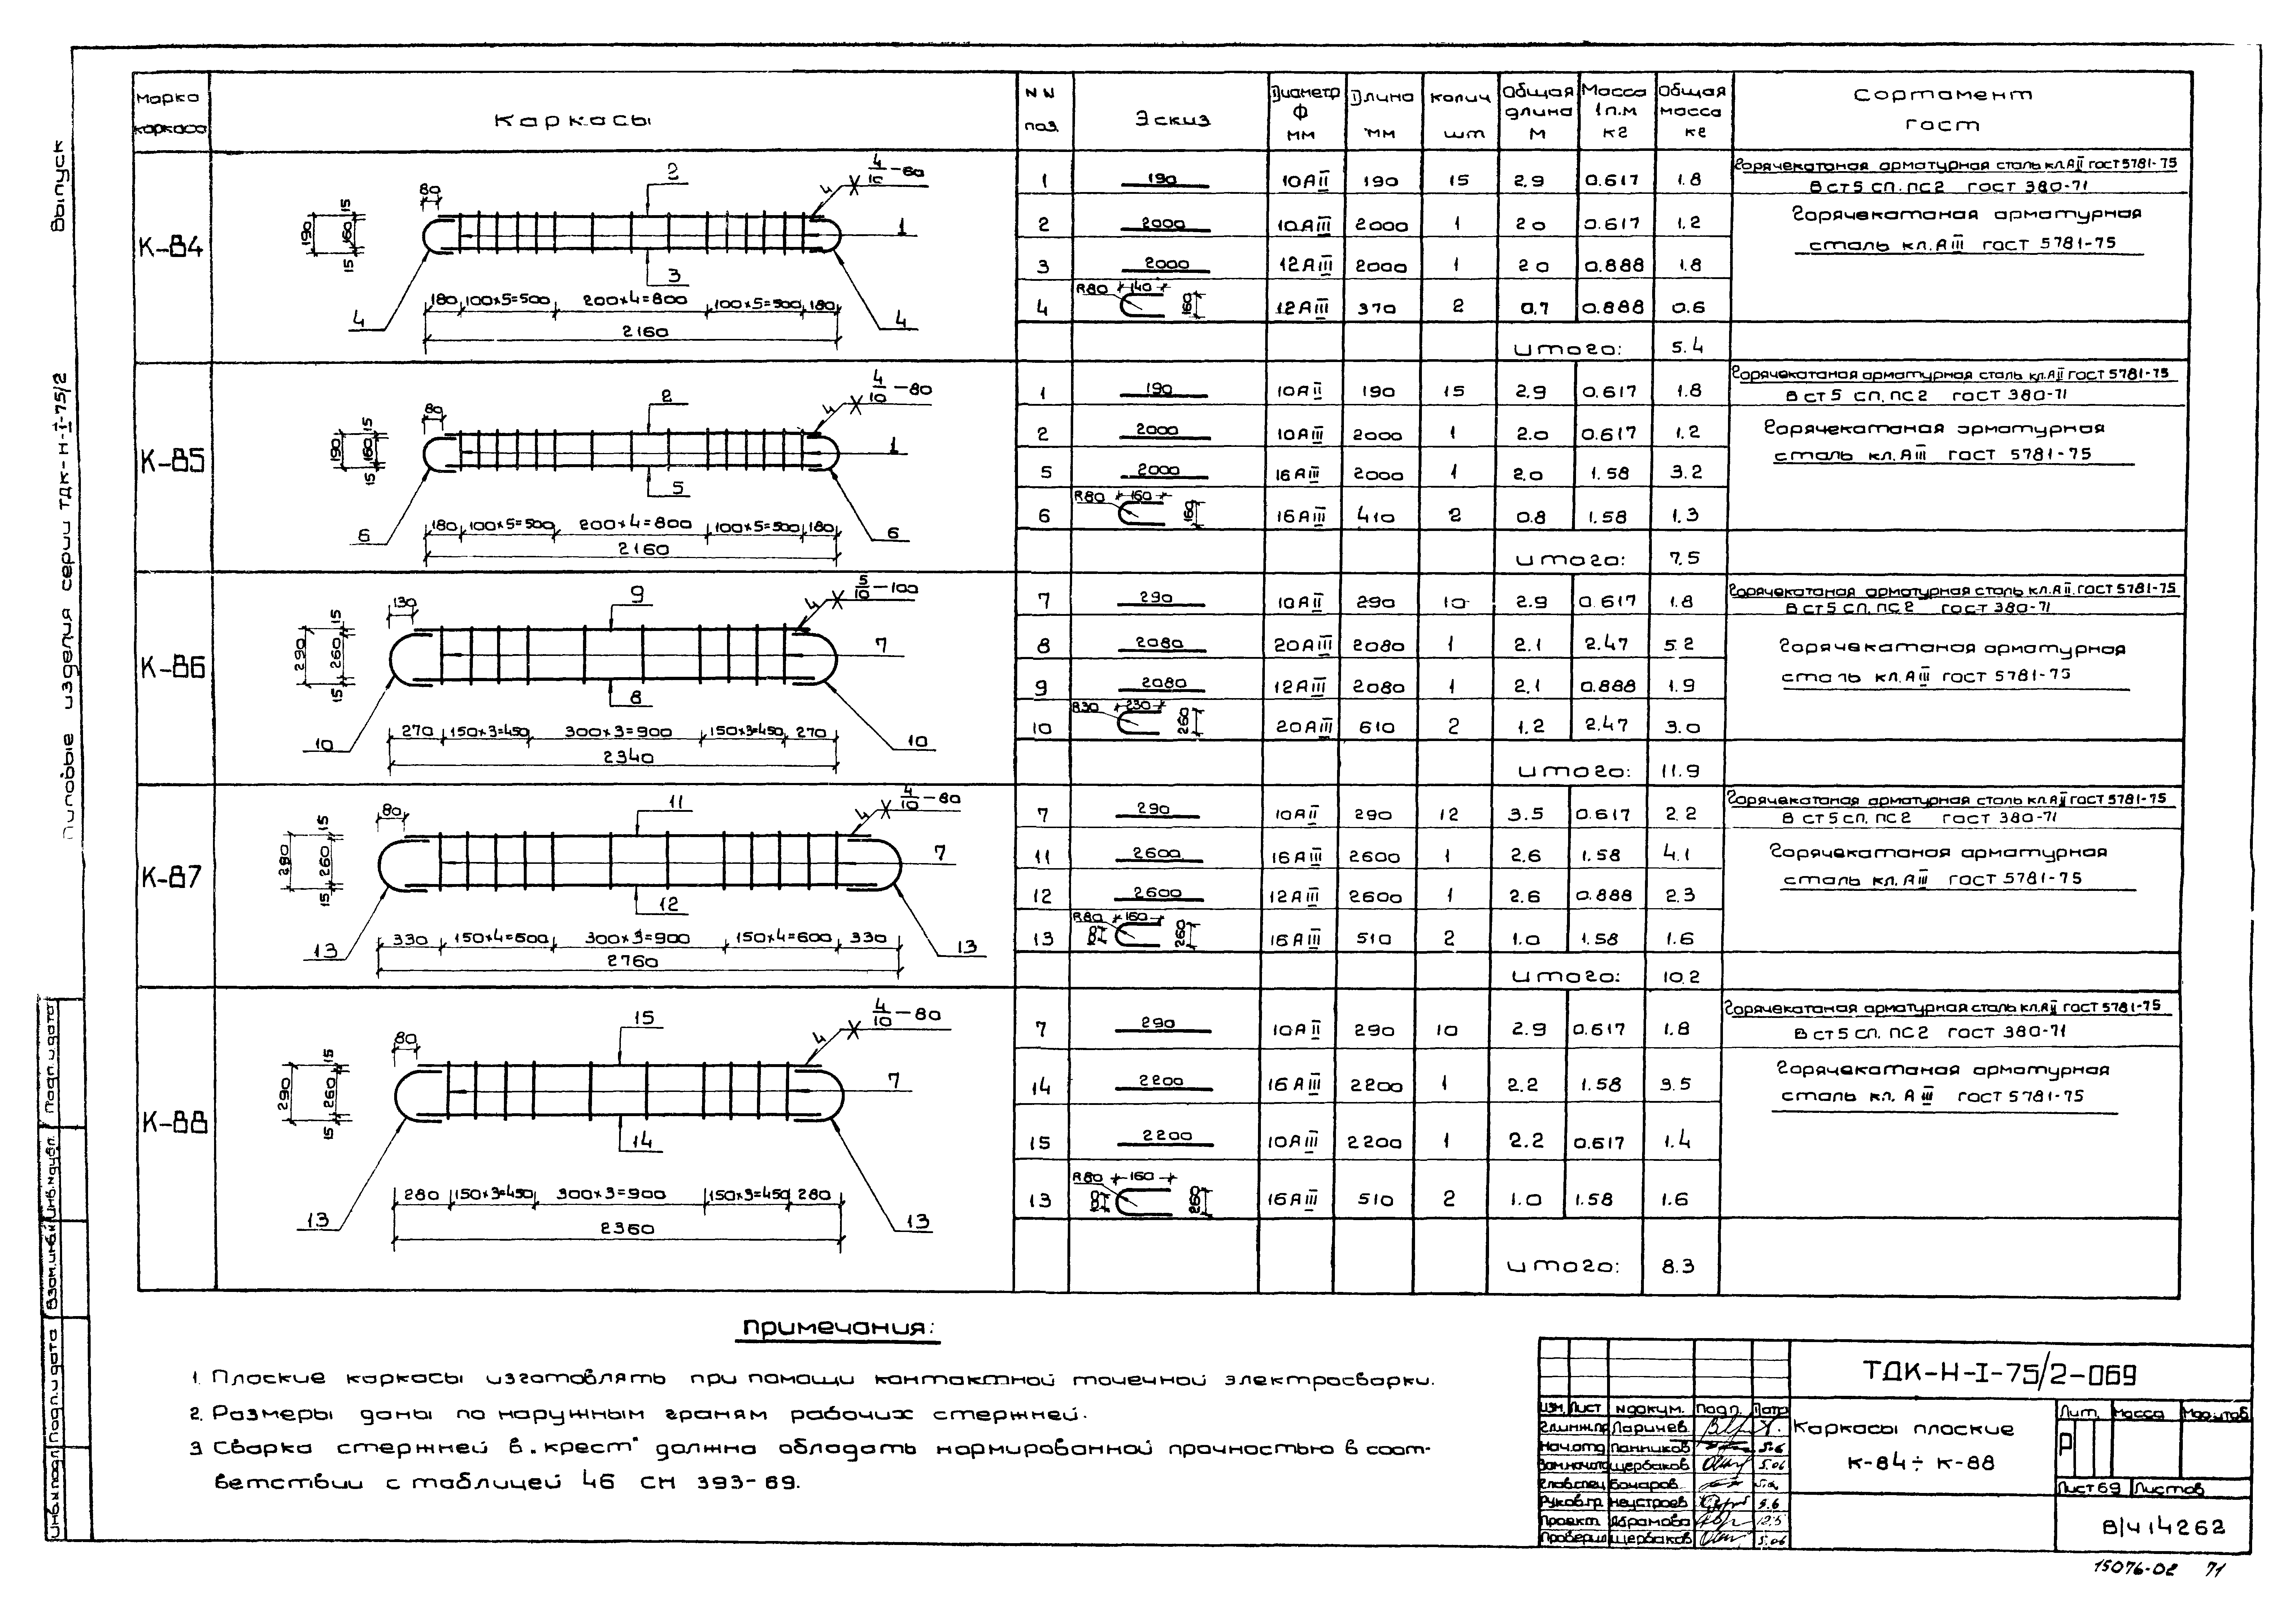 Марка каркаса
Каркасы
NN поз.
Эскиз
Диаметр Ф мм
Длина мм
Колич шт
Общая длина м
Масса 1 п.м кг
Общая масса кг
Сортамент ГОСТ
К-84
80
15
160
190
15
2
4/10-60
4
1
3
180 100×5=500 200×4=800 100×5=500 180
4 2160 4
1 190 10АII 190 15 2.9 0.617 1.8
2 2000 10АIII 2000 1 20 0.617 1.2
3 2000 12АIII 2000 1 20 0.888 1.8
4 R80 140 160 12АIII 370 2 0.7 0.888 0.6
Итого: 5.4
Горячекатаная арматурная сталь кл.АII ГОСТ 5781-75
В СТ5 СП. ПС2 ГОСТ 380-71
Горячекатаная арматурная
сталь кл. АIII ГОСТ 5781-75
К-85
80
15
160
190
15
2
4/10-80
4
1
5
180 100×5=500 200×4=800 100×5=500 180
6 2160 6
1 190 10АII 190 15 2.9 0.617 1.8
2 2000 10АIII 2000 1 2.0 0.617 1.2
5 2000 16АIII 2000 1 2.0 1.58 3.2
6 R80 160 160 16АIII 410 2 0.8 1.58 1.3
Итого: 7.5
Горячекатаная арматурная сталь кл.АII ГОСТ 5781-75
В СТ5 СП. ПС2 ГОСТ 380-71
Горячекатаная арматурная
сталь кл. АIII ГОСТ 5781-75
К-86
130
15
260
290
15
9
5/10-100
4
7
8
270 150×3=450 300×3=900 150×3=450 270
10 2340 10
7 290 10АII 290 10 2.9 0.617 1.8
8 2080 20АIII 2080 1 2.1 2.47 5.2
9 2080 12АIII 2080 1 2.1 0.888 1.9
10 230 260 20АIII 610 2 1.2 2.47 3.0
Итого: 11.9
Горячекатаная арматурная сталь кл.АII. ГОСТ 5781-75
В СТ5 СП. ПС2 ГОСТ 380-71
Горячекатаная арматурная
сталь кл. АIII ГОСТ 5781-75
К-87
80
15
260
15
11
4/10-80
4
7
12
330 150×4=600 300×3=900 150×4=600 330
13 2760 13
7 290 10АII 290 12 3.5 0.617 2.2
11 2600 16АIII 2600 1 2.6 1.58 4.1
12 2600 12АIII 2600 1 2.6 0.888 2.3
13 R80 160 260 16АIII 510 2 1.0 1.58 1.6
Итого: 10.2
Горячекатаная арматурная сталь кл.АII ГОСТ 5781-75
В СТ5 СП. ПС2 ГОСТ 380-71
Горячекатаная арматурная
сталь кл. АIII ГОСТ 5781-75
К-88
80
15
260
290
15
15
4/10-80
4
7
14
280 150×3=450 300×3=900 150×3=450 280
13 2360 13
7 290 10АII 290 10 2.9 0.617 1.8
14 2200 16АIII 2200 1 2.2 1.58 3.5
15 2200 10АIII 2200 1 2.2 0.617 1.4
13 R80 160 260 16АIII 510 2 1.0 1.58 1.6
Итого: 8.3
Горячекатаная арматурная сталь кл.АII ГОСТ 5781-75
В СТ5 СП. ПС2 ГОСТ 380-71
Горячекатаная арматурная
сталь кл. АIII ГОСТ 5781-75
Примечания:
1. Плоские каркасы изготовлять при помощи контактной точечной электросварки.
2. Размеры даны по наружным граням рабочих стержней.
3 Сварка стержней в „крест" должна обладать нормированной прочностью в соот-
ветствии с таблицей 46 СН 393-69.
Выпуск
Типовые изделия серии ТДК-Н-I-75/2
Инв.№подл. Подп. и дата Взам.инв.№ Инв.№дубл. Подп. и дата
ТДК-Н-I-75/2-069
Изм. Лист № докум. Подп. Дата
Гл.инж.пр Ларичев
Нач.отд Панников 5.6
Зам.нач.отд Щербаков 5.06
Глав.спец Бочаров
Руков.гр. Неустроев 5.6
Проект. Абрамова 12.5
Проверил Щербаков 5.06
Каркасы плоские
К-84 ÷ К-88
Лит. Масса Масштаб
Р
Лист 69 Листов
В/ч 14262
15076-02 71